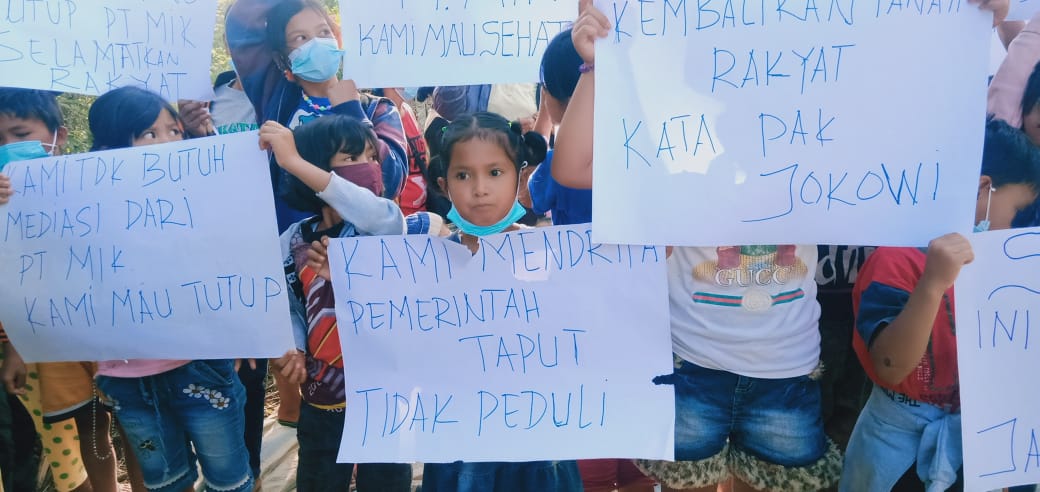 TUTUP PT MIK
SELAMATKAN
RAKYAT
KAMI MAU SEHAT
KEMBALIKAN TANAH
RAKYAT
KATA PAK
JOKOWI
KAMI TDK BUTUH
MEDIASI DARI
PT MIK.
KAMI MAU TUTUP
KAMI MENDRITA
PEMERINTAH
TAPUT
TIDAK PEDULI
GUCCI
INI